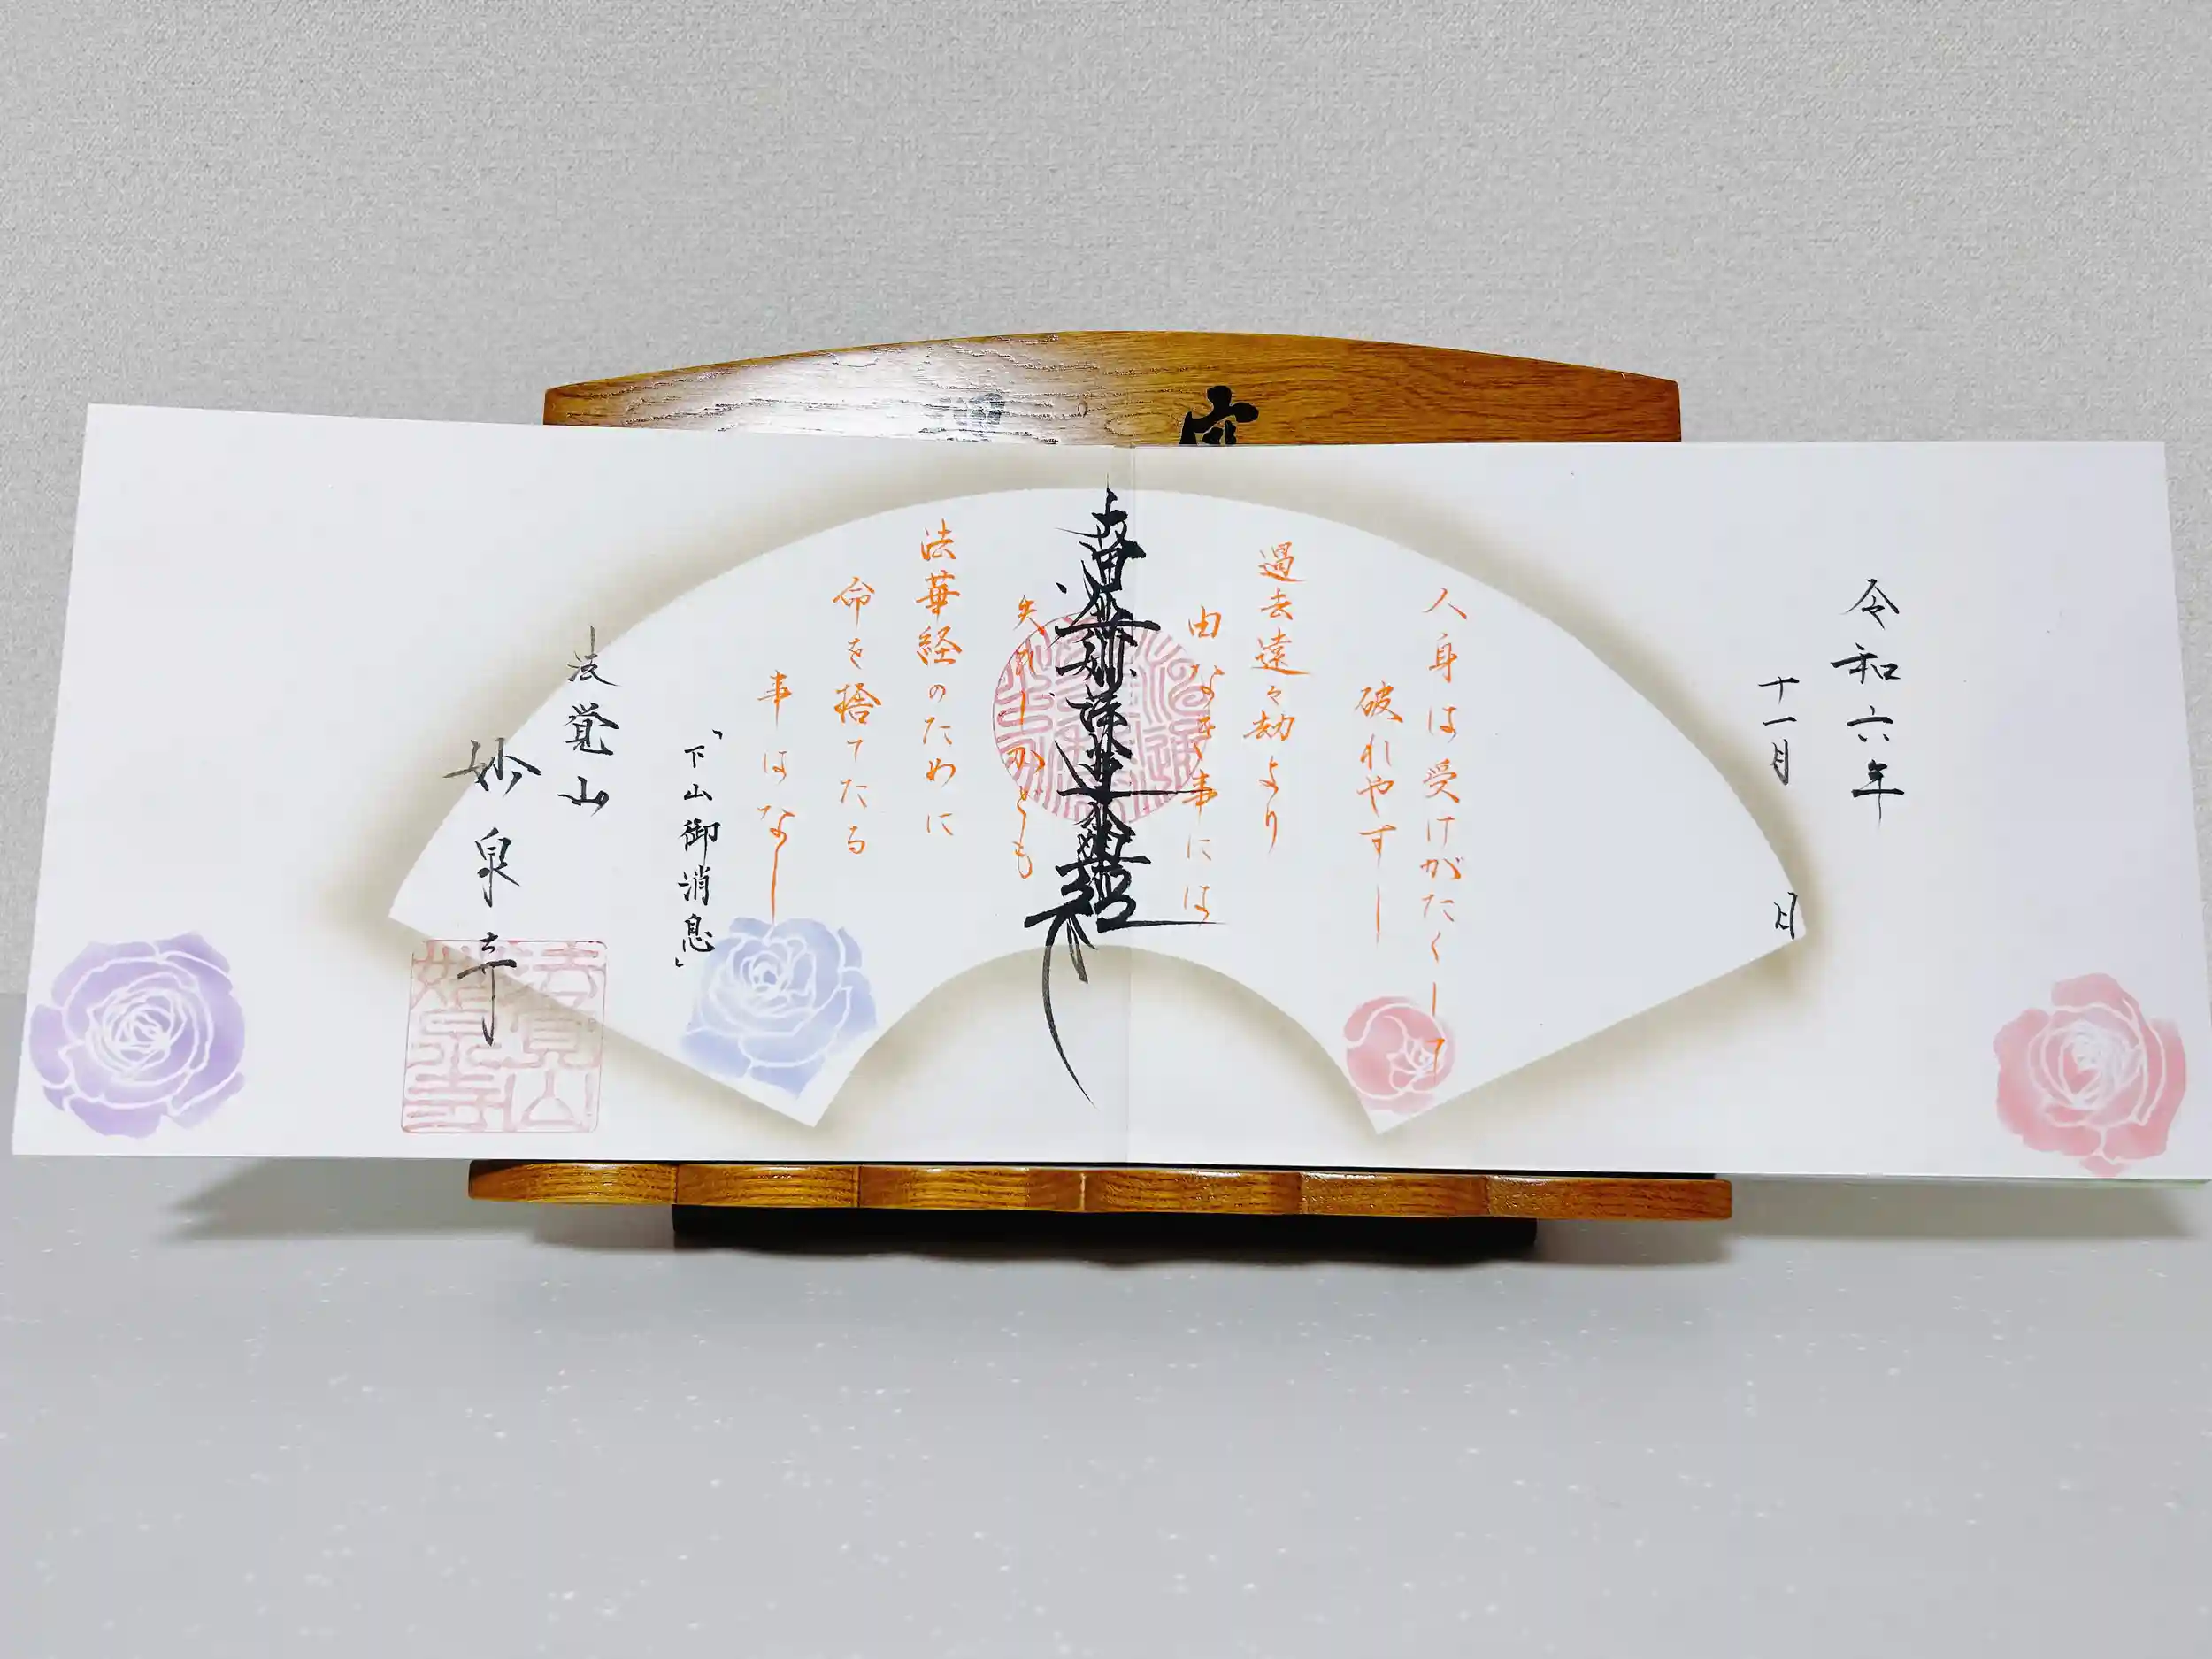 令和六年
十一月 日
人身は受けがたくして
破れやすし
過去遠々劫より
由なき事には
失れしかども
法華経のために
命を捨てたる
事はなし
「下山御消息」
法覚山
妙泉寺
法覚山
妙泉寺